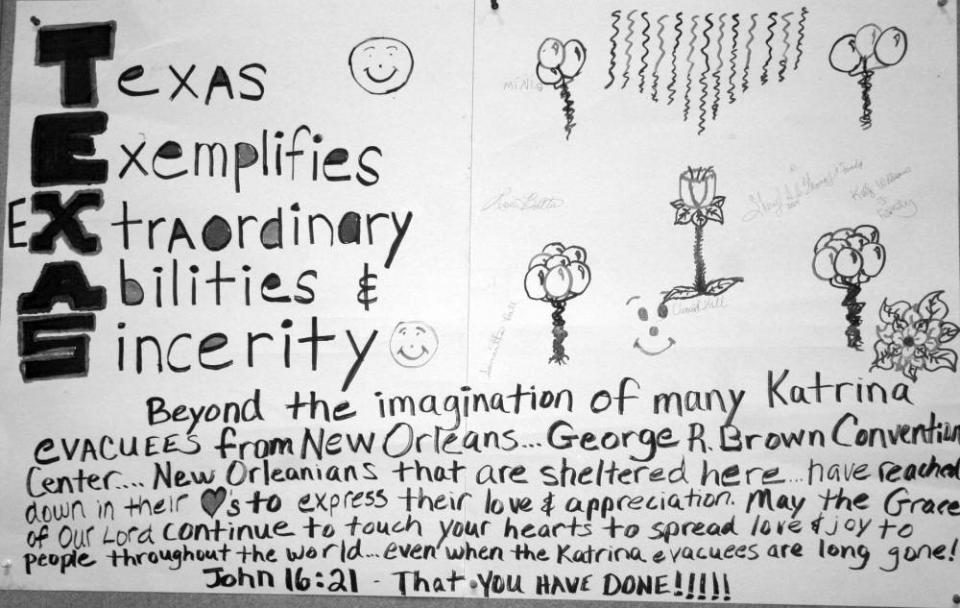 TEXAS
EXemplifies
EXtrAordinary
Abilities &
Sincerity
Beyond the imagination of many Katrina
evacuees from New Orleans... George R. Brown Convention
Center.... New Orleanians that are sheltered here... have reached
down in their ♥'s to express their love & appreciation. May the Grace
of Our Lord continue to touch your hearts to spread love & joy to
people throughout the world... even when the Katrina evacuees are long gone!
John 16:21 - That YOU HAVE DONE!!!!!